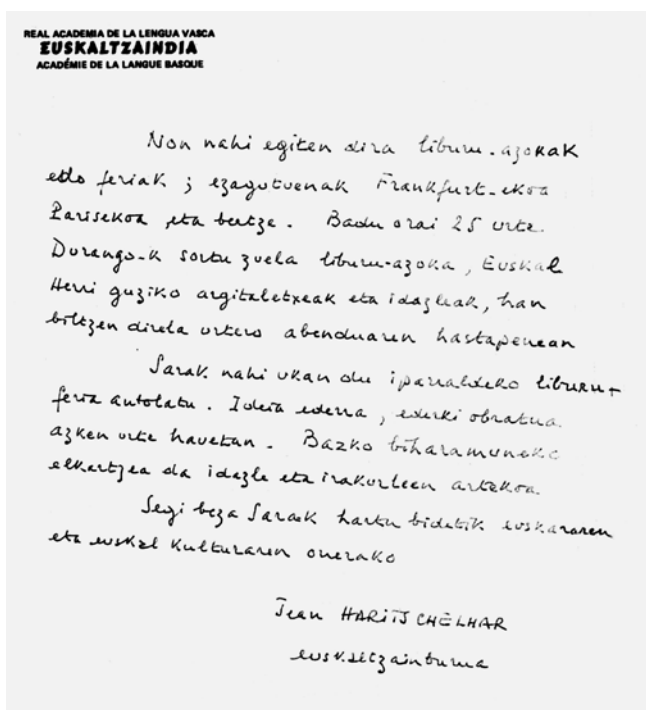 REAL ACADEMIA DE LA LENGUA VASCA
EUSKALTZAINDIA
ACADÉMIE DE LA LANGUE BASQUE
Non nahi egiten dira liburu-azokak
edo feriak ; ezagutuenak Frankfurt-ekoa
Parisekoa eta bertze. Badu orai 25 urte
Durango-k sortu zuela liburu-azoka, Euskal
Herri guziko argitaletxeak eta idazleak, han
biltzen direla urtero abenduaren hastapenean
Sarak nahi ukan du iparraldeko liburu-
feria antolatu. Ideia ederra, ederki obratua
azken urte hauetan. Bazko biharamuneko
elkartzea da idazle eta irakurleen artekoa.
Segi beza Sarak hartu bidetik euskararen
eta euskal kulturaren onerako
Jean HARITSCHELHAR
euskaltzainburua